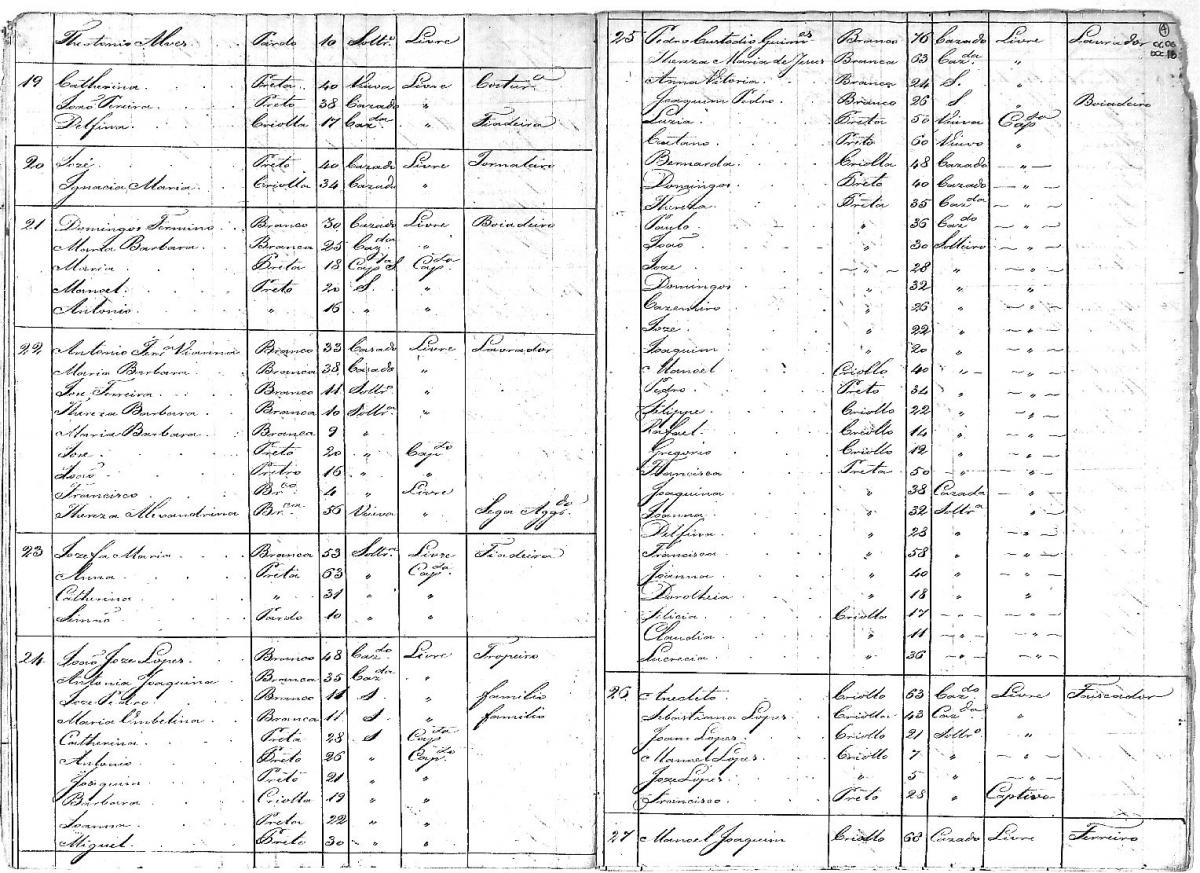 Theotonio Alves Pardo 10 Soltr.º Livre
19 Catherina Preta 40 Viuva Livre Costur.ª
João Pereira Preto 38 Cazado "
Delfina Criolla 17 Caz.da " Fiadeira
20 José Preto 40 Cazado Livre Jornaleiro
Ignacia Maria Criolla 34 Cazado "
21 Domingos Firmino Branco 30 Cazado Livre Boiadeiro
Maria Barbara Branca 25 Caz.da "
Maria Preta 18 Cap.ta S. Cap.ta
Manoel Preto 20 S. "
Antonio " 16 "
22 Antonio Vianna Branco 33 Casado Livre Lavrador
Maria Barbara Branca 38 Cazado "
José Ferreira Branco 11 Soltr.º "
Thereza Barbara Branca 10 Soltr.ª "
Maria Barbara Branca 9 "
José Preto 20 " Cap.do
João Pretro 16 " "
Francisco Br.co 4 " Livre
Thereza Alexandrina Br.ca 56 Viuva " Sega Agg.do
23 Jozefa Maria Branca 53 Soltr.ª Livre Fiadeira
Anna Preta 63 " Cap.da
Catherina " 31 " "
Simão Pardo 10 " "
24 João Joze Lopes Branco 48 Caz.do Livre Tropeiro
Antonia Joaquina Branca 35 Caz.da "
Joze Pedro Branco 11 S " familio
Maria Umbelina Branca 11 S. " familio
Catherina Preta 28 S Cap.da
Antonio Preto 26 " Cap.do
Joaquim Preto 21 " "
Barbara Criolla 19 " "
Joanna Preta 22 " "
Miguel Preto 30 " "
4
25 Pedro Custodio Guim.es Branco 76 Cazado Livre Lavrador
Thereza Maria de Jesus Branca 63 Caz.da "
Anna Vitoria Branca 24 S. "
Joaquim Pedro Branco 26 S " Boiadeiro
Luzia Preta 50 Viuva Cap.da
Caetano Preto 60 Viuvo "
Bernarda Criolla 48 Cazado – " –
Domingos Preto 40 Cazado – " –
Thereza Preta 35 Caz.da – " –
Paulo " 36 Caz.do – " –
João " 30 Solteiro – " –
Joze – " – 28 " – " –
Domingos " 32 " "
Cazemiro " 26 " – " –
Joze " 22 " – " –
Joaquim " 20 " – " –
Manoel Criollo 40 " – – " –
Pedro Preto 34 " – " –
Felippe Criollo 22 " – " –
Rafael Criollo 14 " – " –
Gregorio Criollo 12 " – " –
Francisca Preta 50 – " – – " –
Joaquina " 38 Cazada – " –
Joanna " 32 Soltr.ª "
Delfina " 23 – " –
Francisca " 58 " – " –
Joanna " 40 " – " –
Dorotheia " 18 " "
Felicia Criolla 17 – " – – " –
Claudia " 11 – " – – " –
Lucrecia " 36 – " – – " –
26 Criollo 63 Caz.do Livre Faiscador
Sebastiana Lopes Criolla 43 Caz.da "
Joam Lopes Criollo 21 Soltr.º "
Manuel Lopes Criollo 7 " – " –
Joze Lopes " 5 " – " –
Francisco Preto 28 " Captivo
27 Manoel Joaquim Criollo 68 Cazado Livre Ferreiro